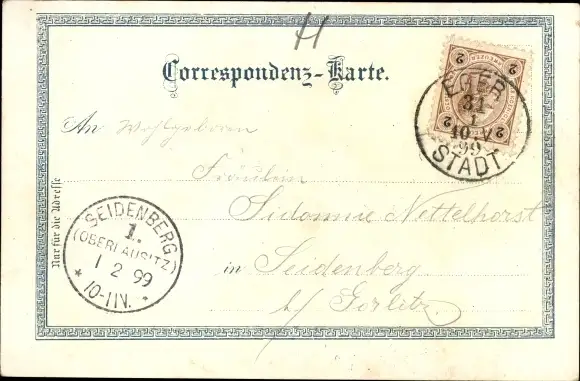 H
Correspondenz-Karte.
2 2
2 2
EGER
31
1
10-V
99
STADT
An Wohlgeboren
Fräulein
Sidonnie Nettelhorst
in Seidenberg
b/ Görlitz.
Nur für die Adresse
SEIDENBERG
1.
(OBERLAUSITZ)
1 2 99
* 10-11V. *